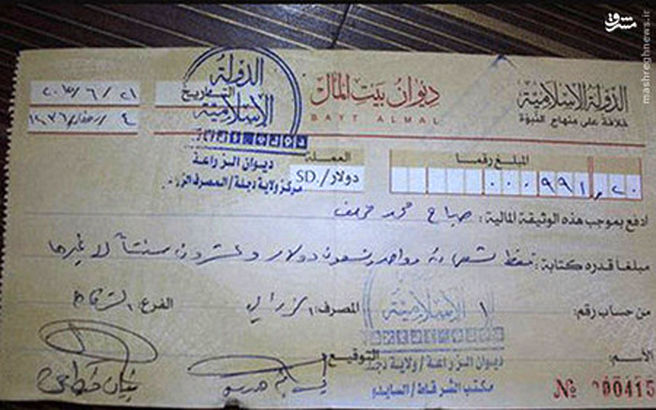 مشرق
mashreghnews.ir
الدولة الإسلامية
خلافة على منهاج النبوة
ديوان بيت المال
BAYT ALMAL
الدولة
الإسلامية
التاريخ
٢٠١٥/٦/٢١
٤ / رمضان / ١٤٣٦
ديوان الزراعة
مركز ولاية دجلة / المصرف الزراعي
المبلغ رقما
٠٠٠٩٩١,٢٠
العملة
دولار/SD
ادفع بموجب هذه الوثيقة المالية : صباح محمد خلف
مبلغا قدره كتابة : فقط تسعمائة وواحد وتسعون دولار وعشرون سنتاً لا غيرها
من حساب رقم : ١
المصرف : الزراعي
الفرع : الشرقاط
الإسلامية
ديوان الزراعة / ولاية دجلة
مكتب الشرقاط / السايلو
الأسم :
التوقيع
№ 000415